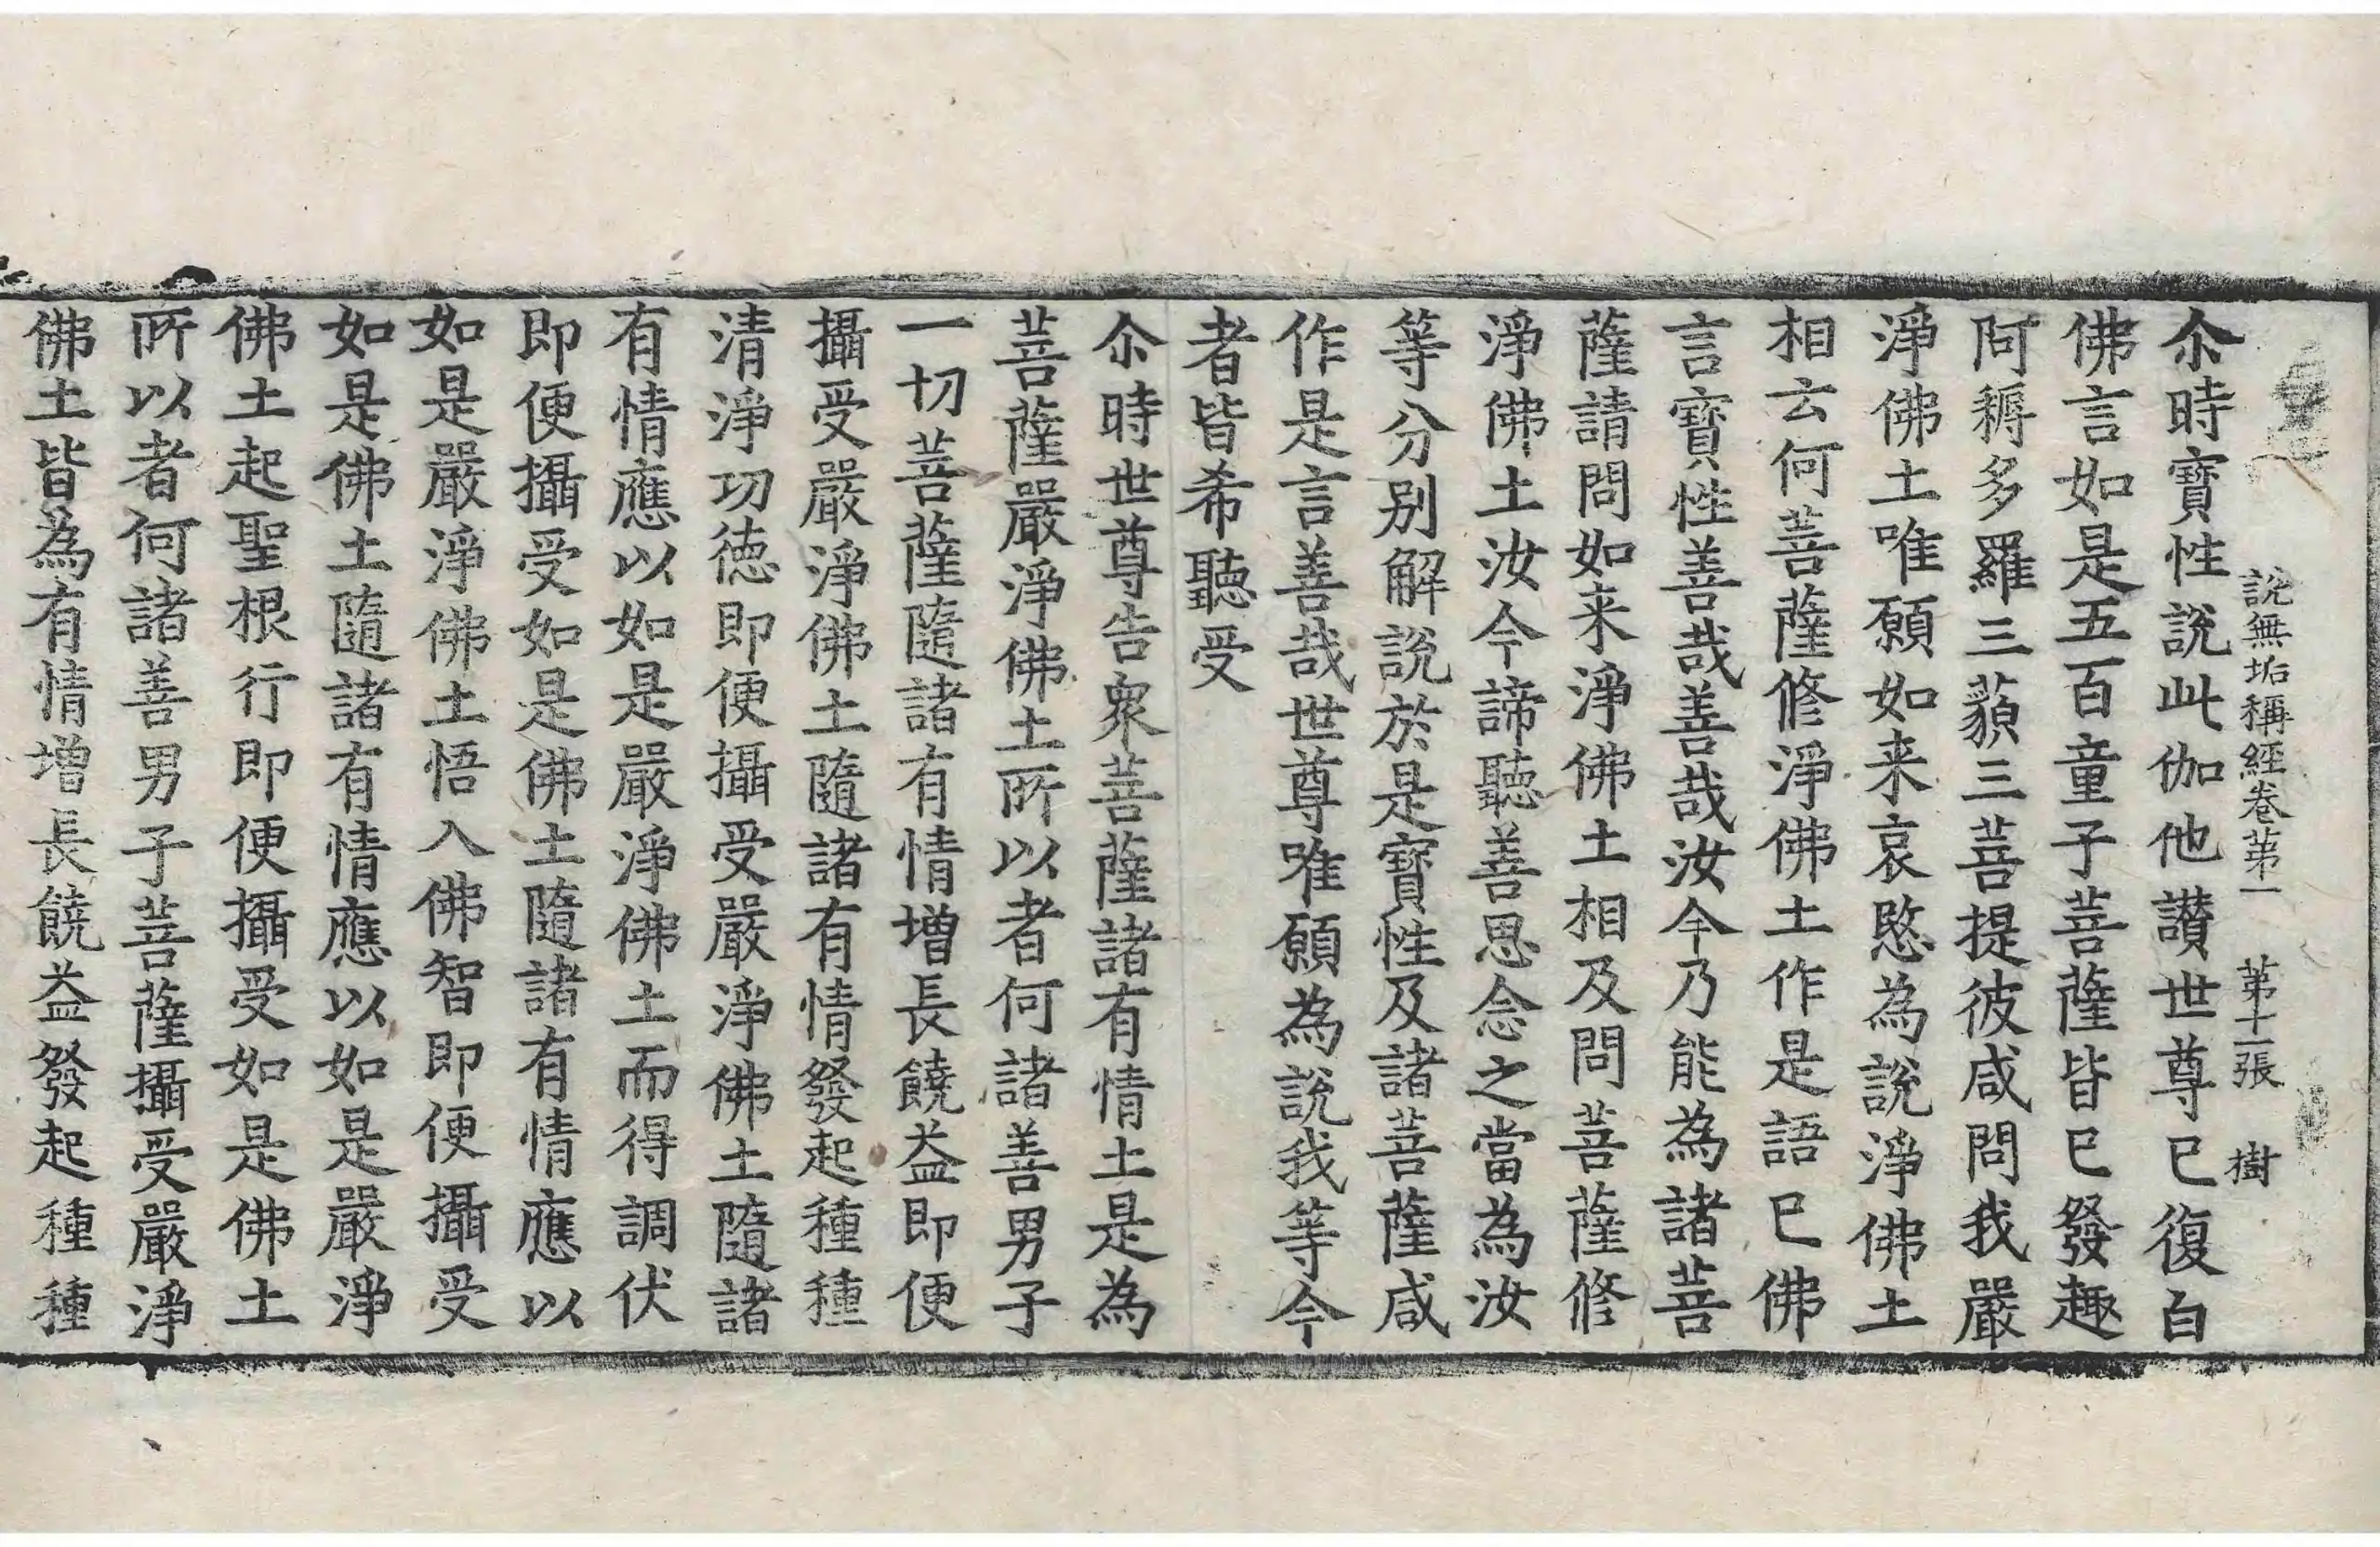 說無垢稱經卷苐一 苐十二張 樹
尒時寶性說此伽他讃世尊已復白
佛言如是五百童子菩薩皆已發趣
阿耨多羅三藐三菩提彼咸問我嚴
淨佛土唯願如来哀愍為說淨佛土
相云何菩薩修淨佛土作是語已佛
言寶性善哉善哉汝今乃能為諸菩
薩請問如来淨佛土相及問菩薩修
淨佛土汝今諦聽善思念之當為汝
等分別解說於是寶性及諸菩薩咸
作是言善哉世尊唯願為說我等今
者皆希聽受
尒時世尊告衆菩薩諸有情土是為
菩薩嚴淨佛土所以者何諸善男子
一切菩薩隨諸有情增長饒益即便
攝受嚴淨佛土隨諸有情發起種種
清淨功徳即便攝受嚴淨佛土隨諸
有情應以如是嚴淨佛土而得調伏
即便攝受如是佛土隨諸有情應以
如是嚴淨佛土悟入佛智即便攝受
如是佛土隨諸有情應以如是嚴淨
佛土起聖根行即便攝受如是佛土
所以者何諸善男子菩薩攝受嚴淨
佛土皆為有情增長饒益發起種種